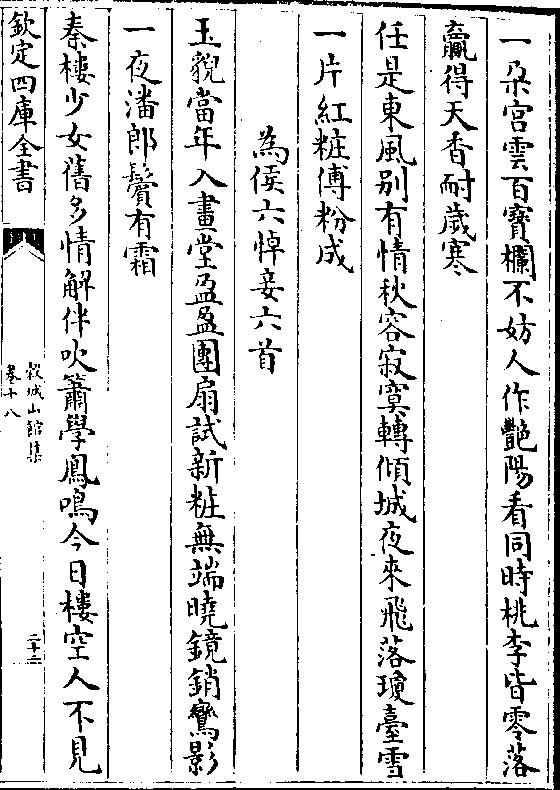 一朶宫雲百寶欄不妨人作艷陽看同時桃李皆零落
贏得天香耐嵗寒
任是東風别有情秋容寂寞轉傾城夜來飛落瓊臺雪
一片紅粧傅粉成
為侯六悼妾六首
玉貌當年入畫堂盈盈團扇試新粧無端曉鏡銷鸞影
一夜潘郎鬢有霜
秦樓少女舊多情解伴吹簫學鳳鳴今日樓空人不見
欽定四庫全書
榖城山館集
卷十八
二十二